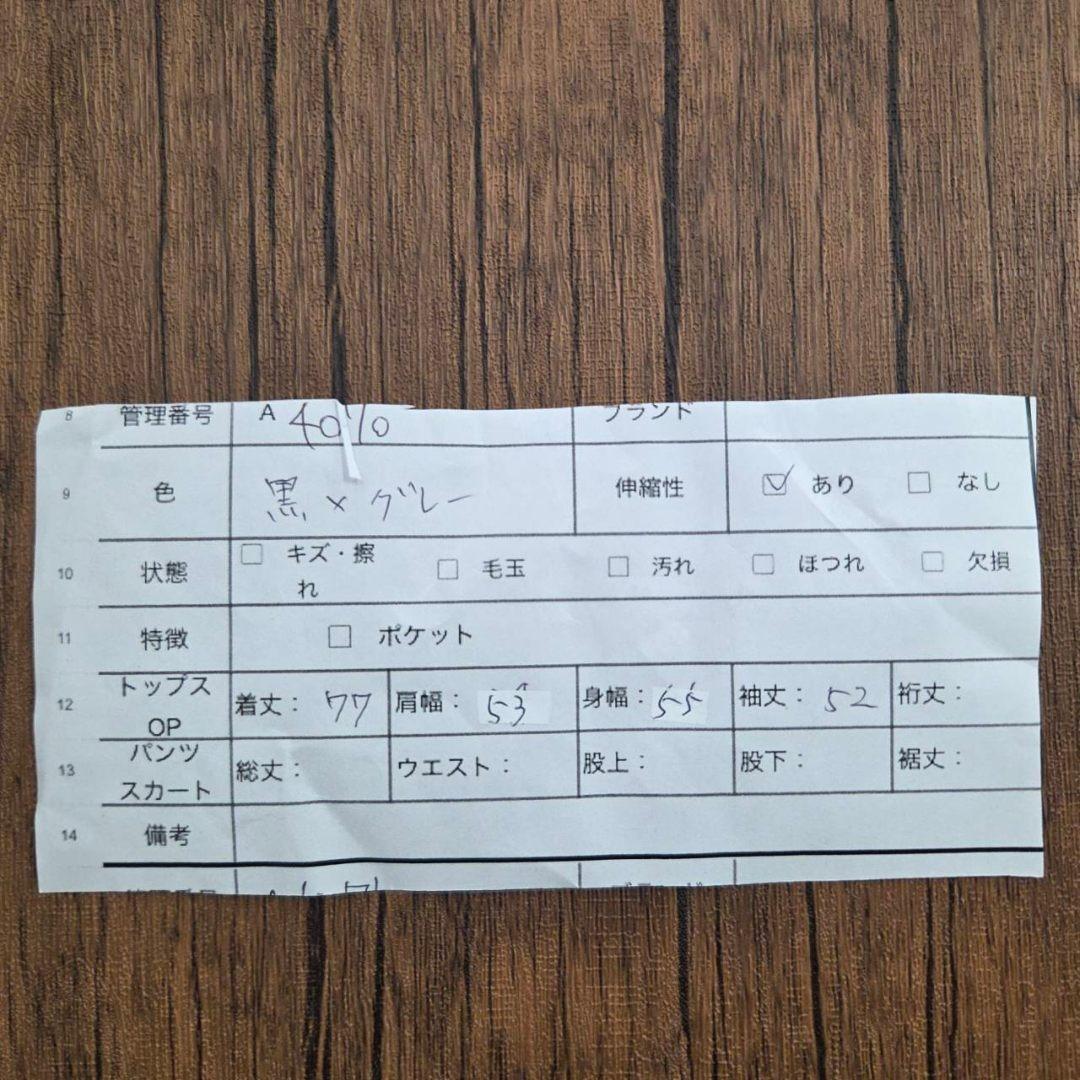 8 管理番号 A 4070 ブランド
9 色 黒×グレー 伸縮性 ☑ あり ☐ なし
10 状態 ☐ キズ・擦れ ☐ 毛玉 ☐ 汚れ ☐ ほつれ ☐ 欠損
11 特徴 ☐ ポケット
12 トップス OP 着丈： 77 肩幅： 53 身幅： 55 袖丈： 52 裄丈：
13 パンツ スカート 総丈： ウエスト： 股上： 股下： 裾丈：
14 備考
管理番号 A